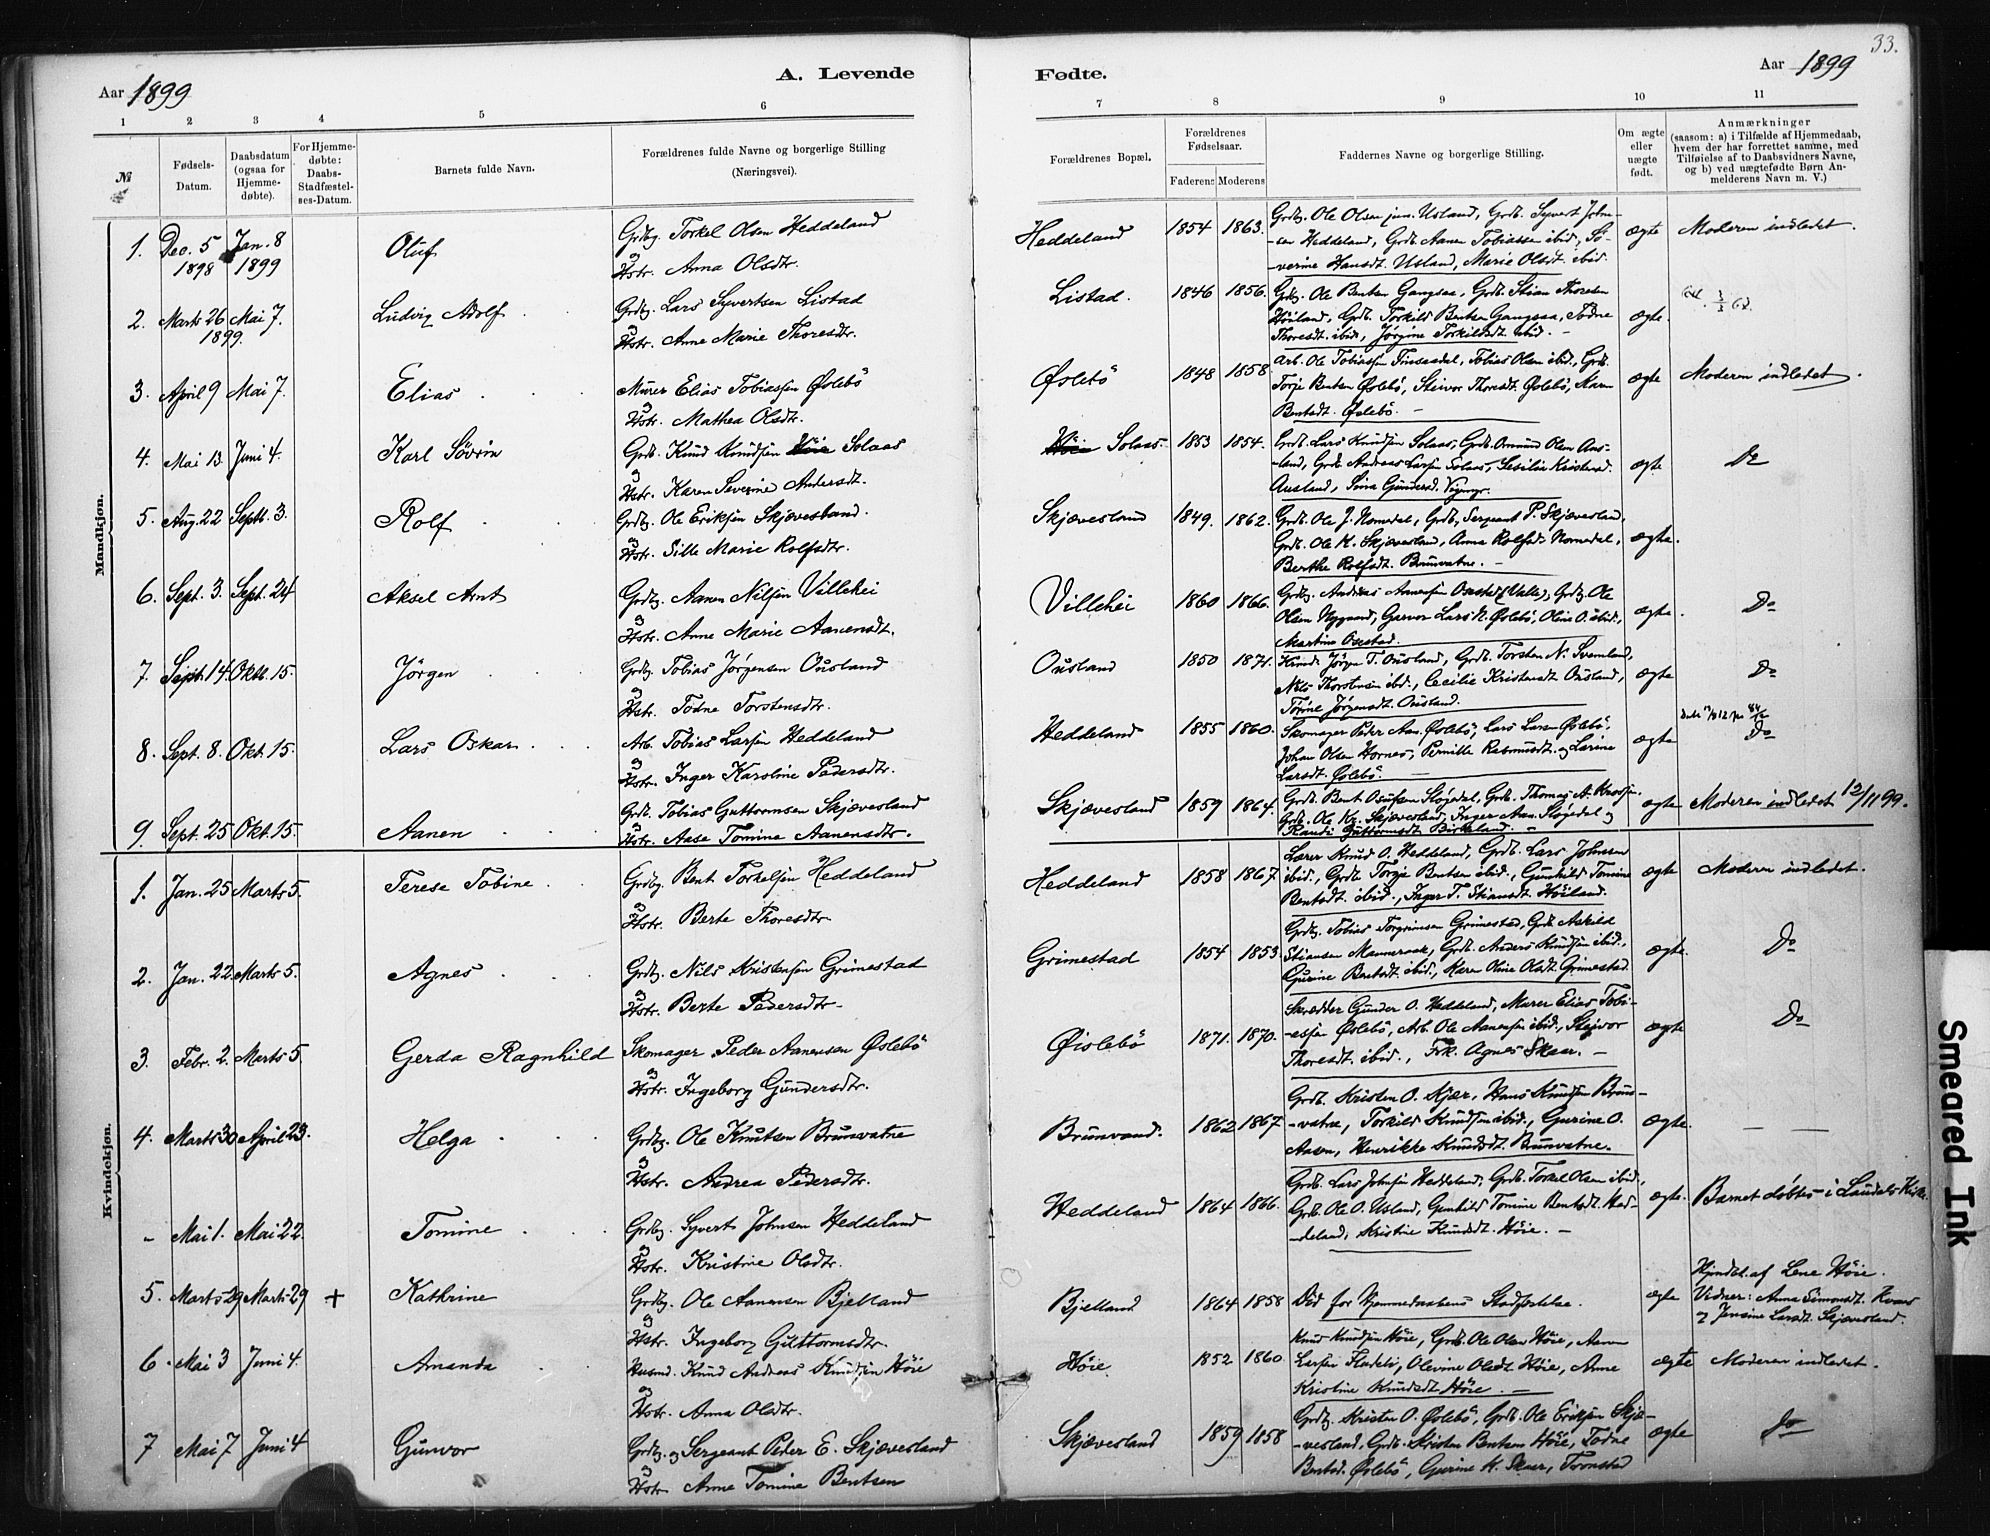 33.
Aar 1899
A. Levende
Fødte.
Aar 1899
1 2 3 4 5 6 7 8 9 10 11
№
Fødsels-
Datum.
Daabsdatum
(ogsaa for
Hjemme-
døbte).
For Hjemme-
døbte:
Daabs-
Stadfæstel-
ses-Datum.
Barnets fulde Navn.
Forældrenes fulde Navne og borgerlige Stilling
(Næringsvei).
Forældrenes Bopæl.
Forældrenes
Fødselsaar.
Faderens Moderens
Faddernes Navne og borgerlige Stilling.
Om ægte
eller
uægte
født.
Anmærkninger
(saasom: a) i Tilfælde af Hjemmedaab,
hvem der har forrettet samme, med
Tilføielse af to Daabsvidners Navne,
og b) ved uægtefødte Børn An-
melderens Navn m. V.)
Mandkjøn.
1. Dec. 5 1898 Jan. 8 1899 Oluf
Grdbg. Torkel Olsen Heddeland
og
Hstr. Anna Olsdtr.
Heddeland 1854 1863.
Grdbg. Ole Olsen jun. Usland, Grdb. Syvert John-
-sen Heddeland, Grdb. Aanen Tobiassen ibid., Sö-
-verine Hansdt. Usland, Marie Olsdt. ibid.
ægte Moderen indledet.
2. Marts 26 1899. Mai 7. Ludvig Adolf
Grdbg. Lars Syvertsen Listad
og
Hstr. Anne Marie Thoresdtr.
Listad. 1846 1856.
Grdbg. Ole Bentsen Gangsaa, Grdb. Stian Thoresen
Höiland, Grdb. Torkild Bentsen Gangsaa, Todne
Thoresdt. ibid., Jørgine Torkildsdt. ibid. –
ægte.
3. April 9 Mai 7. Elias
Murer Elias Tobiassen Øslebö
og
Hstr. Mathea Olsdtr.
Øslebö 1848 1858
Arb. Ole Tobiassen Finsaadal, Tobias Olsen ibid., Grdb.
Torje Bentsen Øslebö, Steivor Thoresdt. Øslebö, Karen
Bentsdt. Øslebö. –
ægte Moderen indledet.
4. Mai 13. Juni 4. Karl Sövrin
Grdb. Knud Knudsen Höie Solaas
og
Hstr. Karen Severine Andersdt.
Höie Solaas. 1853 1854.
Grdb. Lars Knudsen Solaas, Grdb. Omund Olsen Aus-
-land, Grdb. Andreas Larsen Solaas, Cecilie Kristensd.
Ausland, Sina Gundersd.
ægte Do
5. Aug. 22 Septb. 3. Rolf
Grdbg. Ole Eriksen Skjævesland.
og
Hstr. Sille Marie Rolfsdtr.
Skjævesland 1849. 1862.
Grdb. Ole J. Nomedal, Grdb., Sergeant P. Skjævesland,
Grdb. Ole K. Skjævesland, Anna Rolfsdt. Nomedal,
Berthe Rolfsdt. Brunvatne. –
ægte.
6. Sept. 3. Sept. 24 Aksel Arnt
Grdbg. Aanen Nilsen Villehei
og
Hstr. Anne Marie Aanensdt.
Villehei 1860 1866.
Grdbg. Andreas Aanensen, Grdbg. Ole
Olsen Nygaard, Gunvor Larsdt. Øslebö, Olina O. ibid.,
Martina
ægte. Do
7. Sept. 14. Oktb. 15. Jörgen
Grdbg. Tobias Jørgensen Ousland
og
Hstr. Todne Torstensdtr.
Ousland 1850 1871.
Jörgen T. Ousland, Grdb. Torsten N. Svemland,
Nils Thorstensen ibid., Cecilie Kristensdt. Ousland,
Tørine Jørgensdt. Ousland.
ægte Do
8. Sept. 8. Okt. 15. Lars Oskar
Arb. Tobias Larsen Heddeland
og
Hstr. Inger Karoline Pedersdtr.
Heddeland 1855 1860.
Skomager Peder Aan. Øslebö, Lars Larsen Øslebö,
Johan Olsen Hornes, Pernille Rasmusdt. og Larine
Larsdt. Øslebö. –
ægte Do
9. Sept. 25 Okt. 15. Aanen
Grdb. Tobias Guttormsen Skjævesland
og
Hstr. Aase Tomine Aanensdtr.
Skjævesland 1859 1864.
Grdb. Bent Osufsen Stögedal, Grdb. Thomas A.
Grdb. Ole Kr. Skjævesland, Inger Aan. Stögedal og
Randi Guttormsdt. Birkeland. –
ægte Moderen indledet 12/11 99.
Kvindekjøn.
1. Jan. 25 Marts 5. Terese Tobine
Grdbg. Bent Torkelsen Heddeland
og
Hstr. Berte Thoresdtr.
Heddeland 1858 1867
Lærer Knud O. Heddeland, Grdb. Lars Johnsen
ibid., Grdb. Torje Bentsen ibid., Gunhild Tomine
Bentsdt. ibid., Inger T. Stiansdt. Höiland.
ægte Moderen indledet.
2. Jan. 22 Marts 5. Agnes
Grdbg. Nils Kristensen Grimestad
og
Hstr. Berte Pedersdtr.
Grimestad 1854 1853.
Grdbg. Tobias Torgrimsen Grimestad, Grdb. Askild
Stiansen Manneraak, Grdb. Anders Knudsen ibid.,
Gurine Bentsdt. ibid., Karen Oline Olsdt. Grimestad.
ægte. Do
3. Febr. 2. Marts 5. Gerda Ragnhild
Skomager Peder Aanensen Øslebö
og
Hstr. Ingeborg Gundersdtr.
Øislebö 1871. 1870.
Skrædder Gunder O. Heddeland, Murer Elias Tobi-
-assen Øslebö, Arb. Ole Aanensen ibid., Steivor
Thoresdt. ibid., Frk. Agnes Skaar. –
ægte Do
4. Marts 30 April 23. Helga
Grdbg. Ole Knutsen Brunvatne
og
Hstr. Andrea Pedersdtr.
Brunvand. 1862 1867
Grdb. Kristen O. Kjær, Hans Knudsen Brun-
-vatne, Torkild Knudsen ibid., Gurine O.
Aasen, Henrikke Knudsdt. Brunvatne.
ægte. – –
- Mai 1. Mai 22. Tomine
Grdbg. Syvert Johnsen Heddeland
og
Hstr. Kristine Olsdtr.
Heddeland 1864 1866.
Grdb. Lars Johnsen Heddeland, Grdb. Torkel Olsen ibid.,
Grdb. Ole O. Usland, Gunhild Tomine Bentsdt. Hed-
-deland, Kristine Knudsdt. Höie. –
ægte. Barnet döbtes i Laudals Kirke.
5. Marts 29 Marts 29 + Kathrine
Grdbg. Ole Aanensen Bjelland
og
Hstr. Ingeborg Guttormsdtr.
Bjelland 1864 1858
Död för Hjemmedaabens Stadfæstelse.
ægte
Hjmdøbt af Lene Höie.
Vidner: Anna Simonsdt. Kvaas
og Jensine Larsdt. Skjævesland.
6 Mai 3 Juni 4. Amanda
Husmd. Knud Andreas Knudsen Höie
og
Hstr. Anna Olsdtr.
Höie. 1852 1860.
Knud Knudsen Höie, Grdb. Ole Olsen Höie, Aanen
Larsen Fladebö, Olevine Olsdt. Höie, Anne
Kristine Knudsdt. Höie. –
ægte Moderen indledet.
7 Mai 7 Juni 4 Gunvor
Grdbg. og Sergeant Peder E. Skjævesland
og
Hstr. Anne Tomine Bentsen
Skjævesland 1859 1858
Grdbg. Kristen O. Øslebö, Grdb. Ole Eriksen Skjæ-
-vesland, Grdb. Kristen Bentsen Höie, Todne
Bentsd. Øslebö, Gurine K. Skaar, Tronstad
ægte Do
Smeared Ink